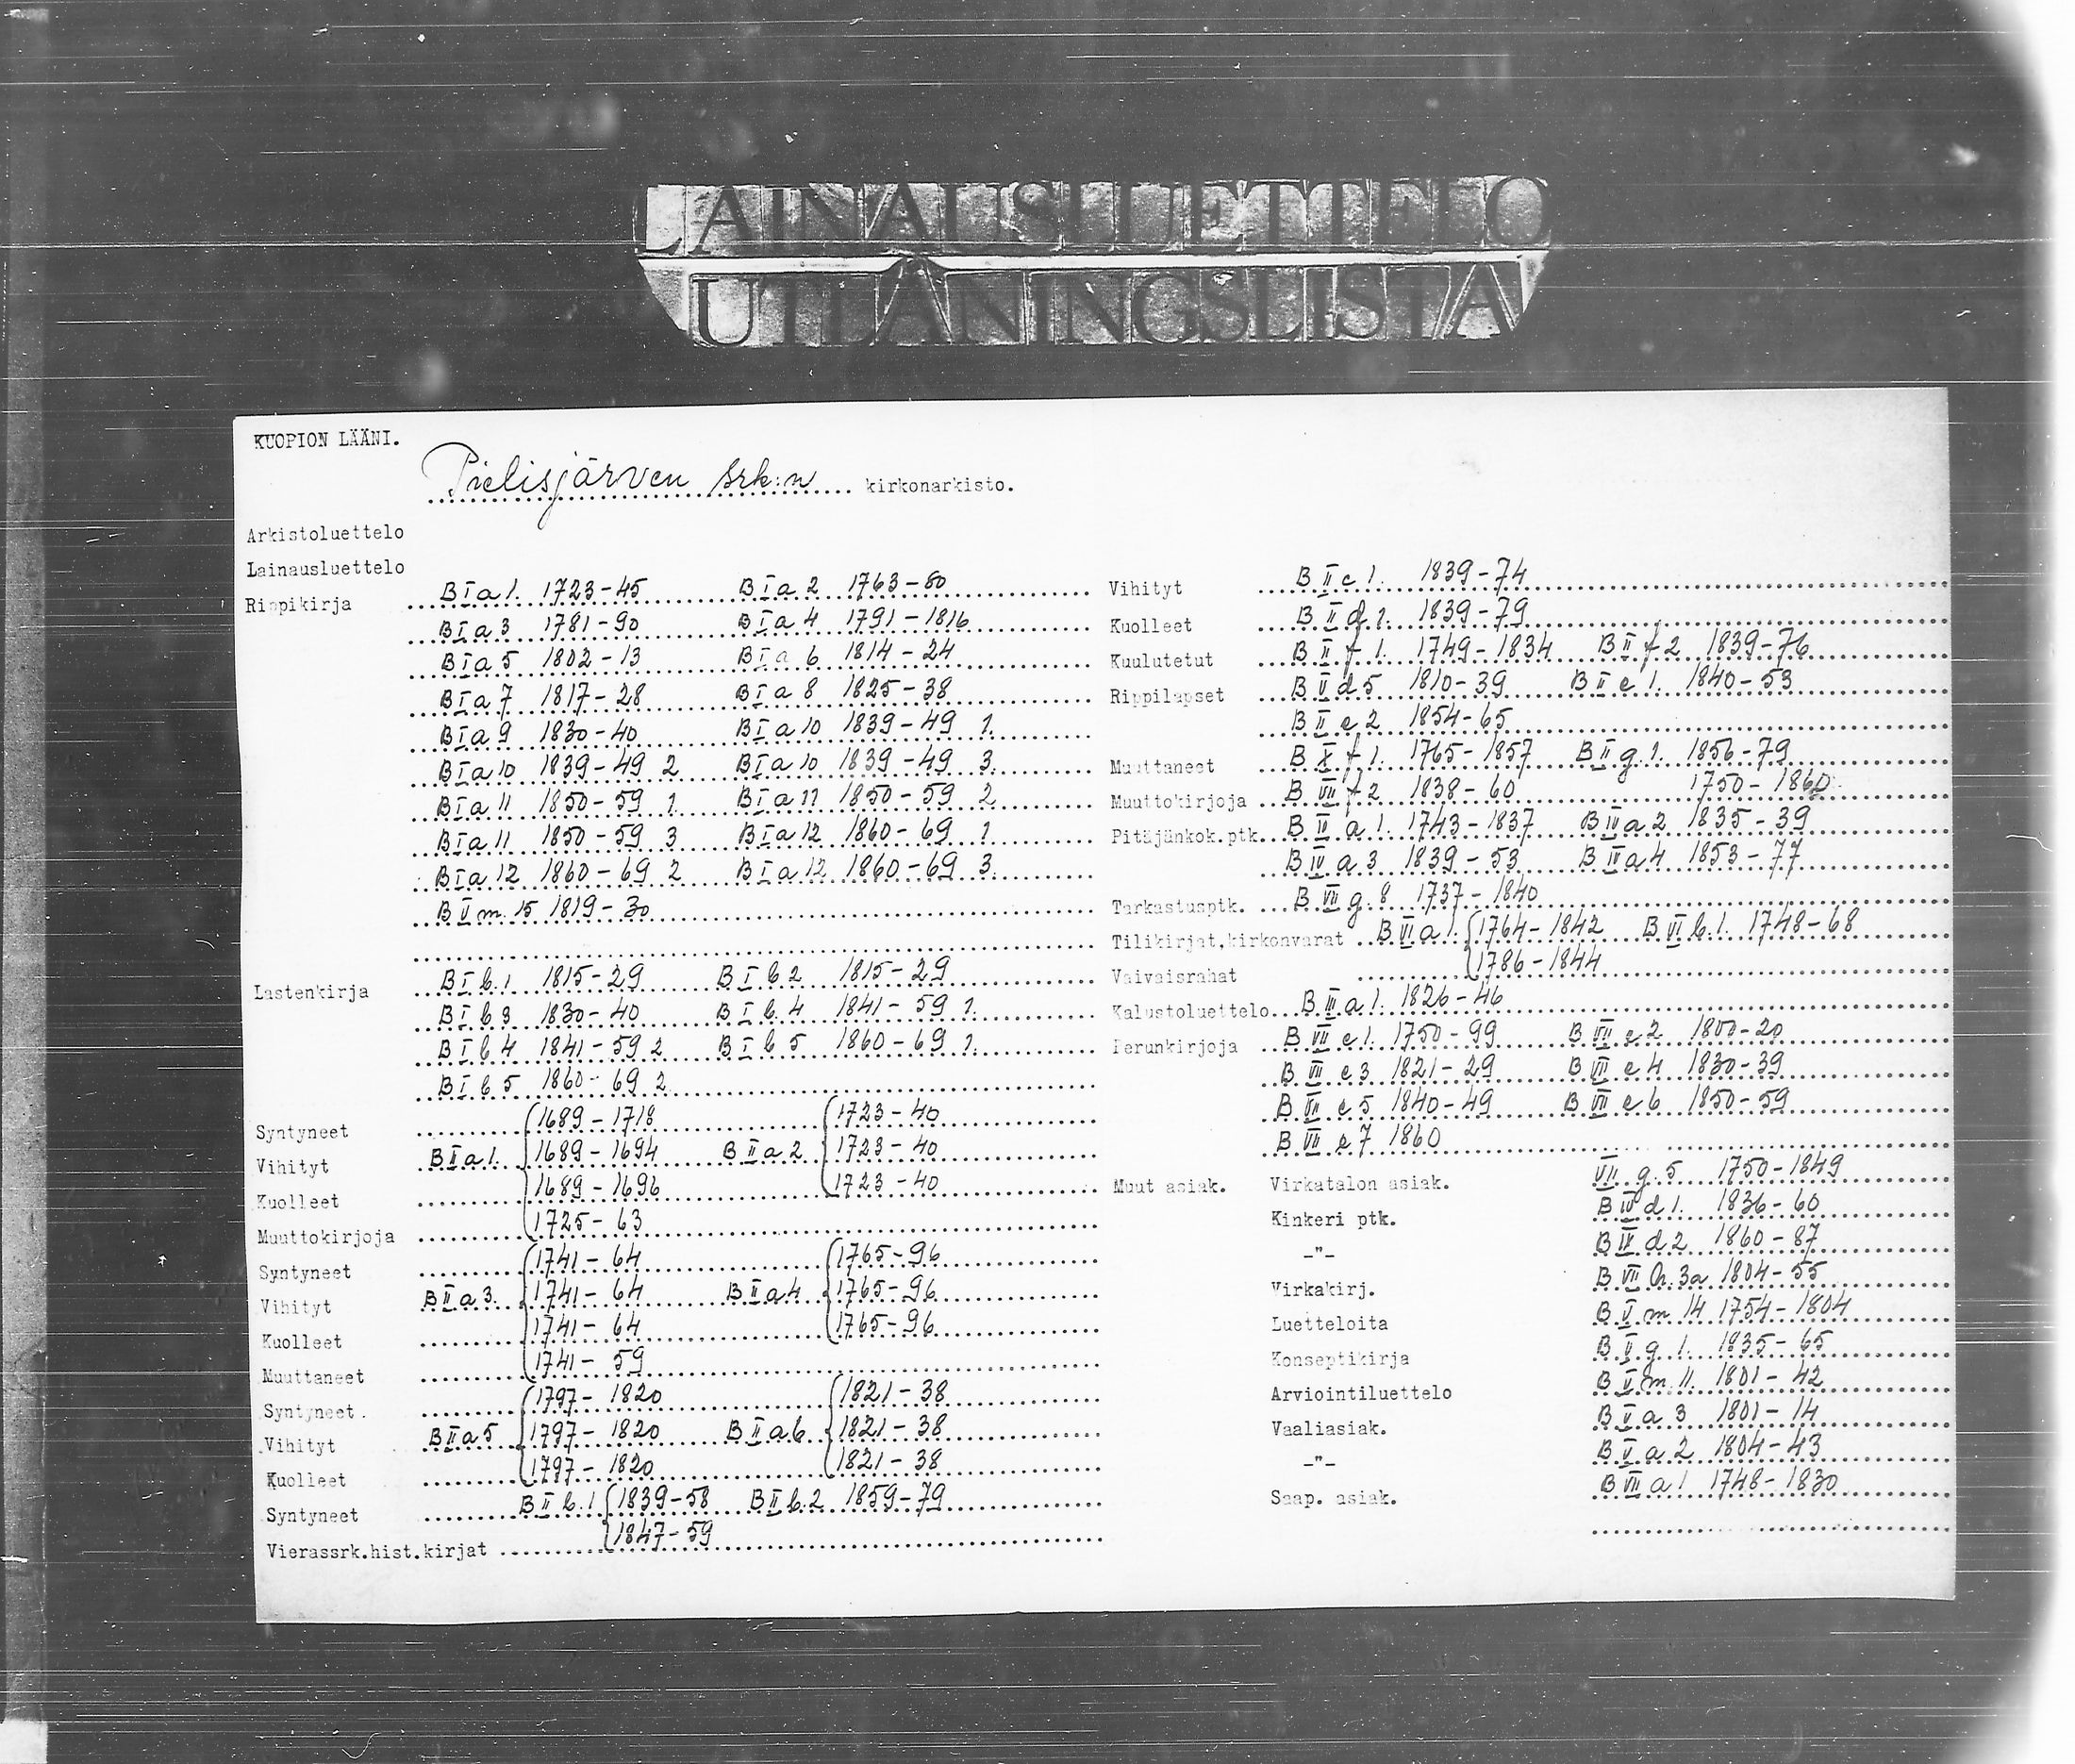 LAINAUSLUETTELO
UTLÅNINGSLISTA
KUOPION LÄÄNI.
Pielisjärven srk:n kirkonarkisto.
Arkistoluettelo
Lainausluettelo
Rippikirja B I a 1. 1723-45 B I a 2 1763-80
B I a 3 1781-90 B I a 4 1791-1816
B I a 5 1802-13 B I a 6 1814-24
B I a 7 1817-28 B I a 8 1825-38
B I a 9 1830-40 B I a 10 1839-49 1.
B I a 10 1839-49 2 B I a 10 1839-49 3.
B I a 11 1850-59 1. B I a 11 1850-59 2
B I a 11 1850-59 3 B I a 12 1860-69 1
B I a 12 1860-69 2 B I a 12 1860-69 3.
B V m. 15 1819-30
Lastenkirja B I b. 1 1815-29 B I b 2 1815-29
B I b 3 1830-40 B I b. 4 1841-59 1.
B I b 4 1841-59 2 B I b 5 1860-69 1.
B I b 5 1860-69 2
Syntyneet 1689-1718 1723-40
Vihityt B II a 1. 1689-1694 B II a 2 1723-40
Kuolleet 1689-1696 1723-40
Muuttokirjoja 1725-63
Syntyneet 1741-64 1765-96
Vihityt B II a 3. 1741-64 B II a 4 1765-96
Kuolleet 1741-64 1765-96
Muuttaneet 1741-59
Syntyneet. 1797-1820 1821-38
Vihityt B II a 5 1797-1820 B II a 6 1821-38
Kuolleet 1797-1820 1821-38
Syntyneet B II b. 1 1839-58 B II b. 2 1859-79
Vierassrk.hist.kirjat 1847-59
Vihityt B II c 1. 1839-74
Kuolleet B II d 1. 1839-79
Kuulutetut B II f 1. 1749-1834 B II f 2 1839-76
Rippilapset B V d 5 1810-39 B II e 1. 1840-53
B II e 2 1854-65
Muuttaneet B X f 1. 1765-1857 B II g. 1. 1856-79
Muuttokirjoja B VII f 2 1838-60 1750-1860
Pitäjänkok.ptk. B IV a 1. 1743-1837 B IV a 2 1835-39
B IV a 3 1839-53 B IV a 4 1853-77
Tarkastusptk. B VII g. 8 1737-1840
Tilikirjat,kirkonvarat B VI a 1. 1764-1842 B VI b. 1. 1748-68
Vaivaisrahat 1786-1844
Kalustoluettelo B III a 1. 1826-46
Perunkirjoja B VII e 1. 1750-99 B VII e 2 1800-20
B VII e 3 1821-29 B VII e 4 1830-39
B VII e 5 1840-49 B VII e 6 1850-59
B VII e 7 1860
Muut asiak. Virkatalon asiak. VII g. 5 1750-1849
Kinkeri ptk. B IV d 1. 1836-60
-"- B IV d 2 1860-87
Virkakirj. B VII h. 3a 1804-55
Luetteloita B V m. 14 1754-1804
Konseptikirja B V g. 1. 1835-65
Arviointiluettelo B V m. 11. 1801-42
Vaaliasiak. B V a 3 1801-14
-"- B V a 2 1804-43
Saap. asiak. B VII a 1 1748-1830